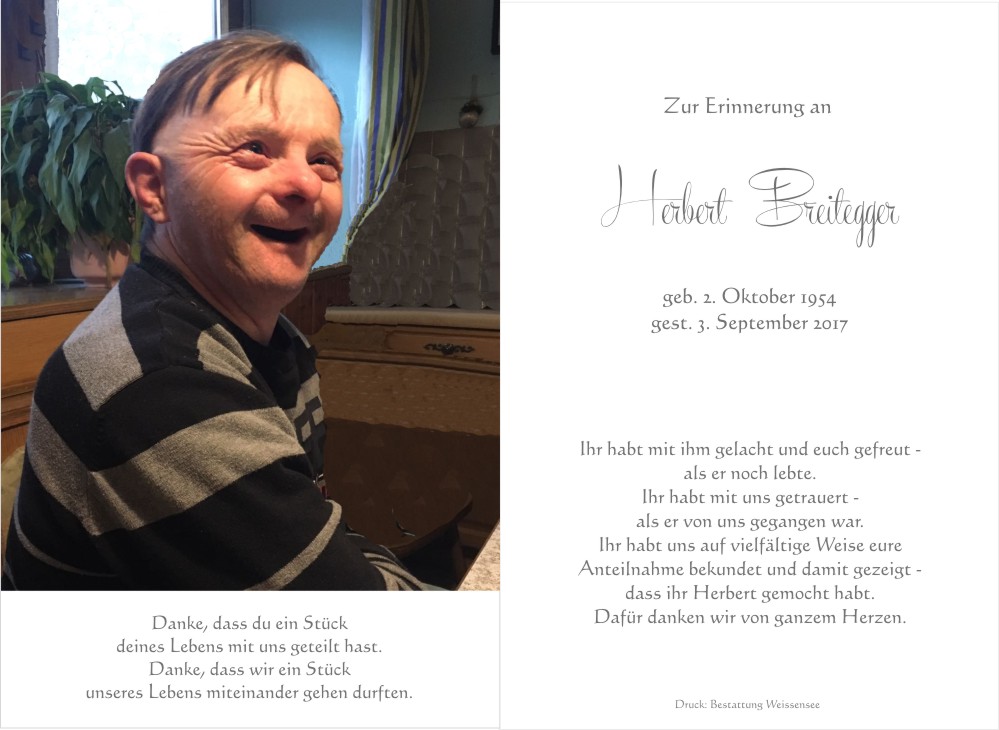 Danke, dass du ein Stück
deines Lebens mit uns geteilt hast.
Danke, dass wir ein Stück
unseres Lebens miteinander gehen durften.
Zur Erinnerung an
Herbert Breitegger
geb. 2. Oktober 1954
gest. 3. September 2017
Ihr habt mit ihm gelacht und euch gefreut -
als er noch lebte.
Ihr habt mit uns getrauert -
als er von uns gegangen war.
Ihr habt uns auf vielfältige Weise eure
Anteilnahme bekundet und damit gezeigt -
dass ihr Herbert gemocht habt.
Dafür danken wir von ganzem Herzen.
Druck: Bestattung Weissensee